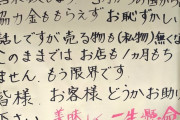 協力金ももらえずお恥ずかしい
話しですが売る物も(私物)無く
このままではお店も1ヵ月もち
ません、もう限界です。
皆様、お客様どうかお助け
下さい 美味しく一生懸命